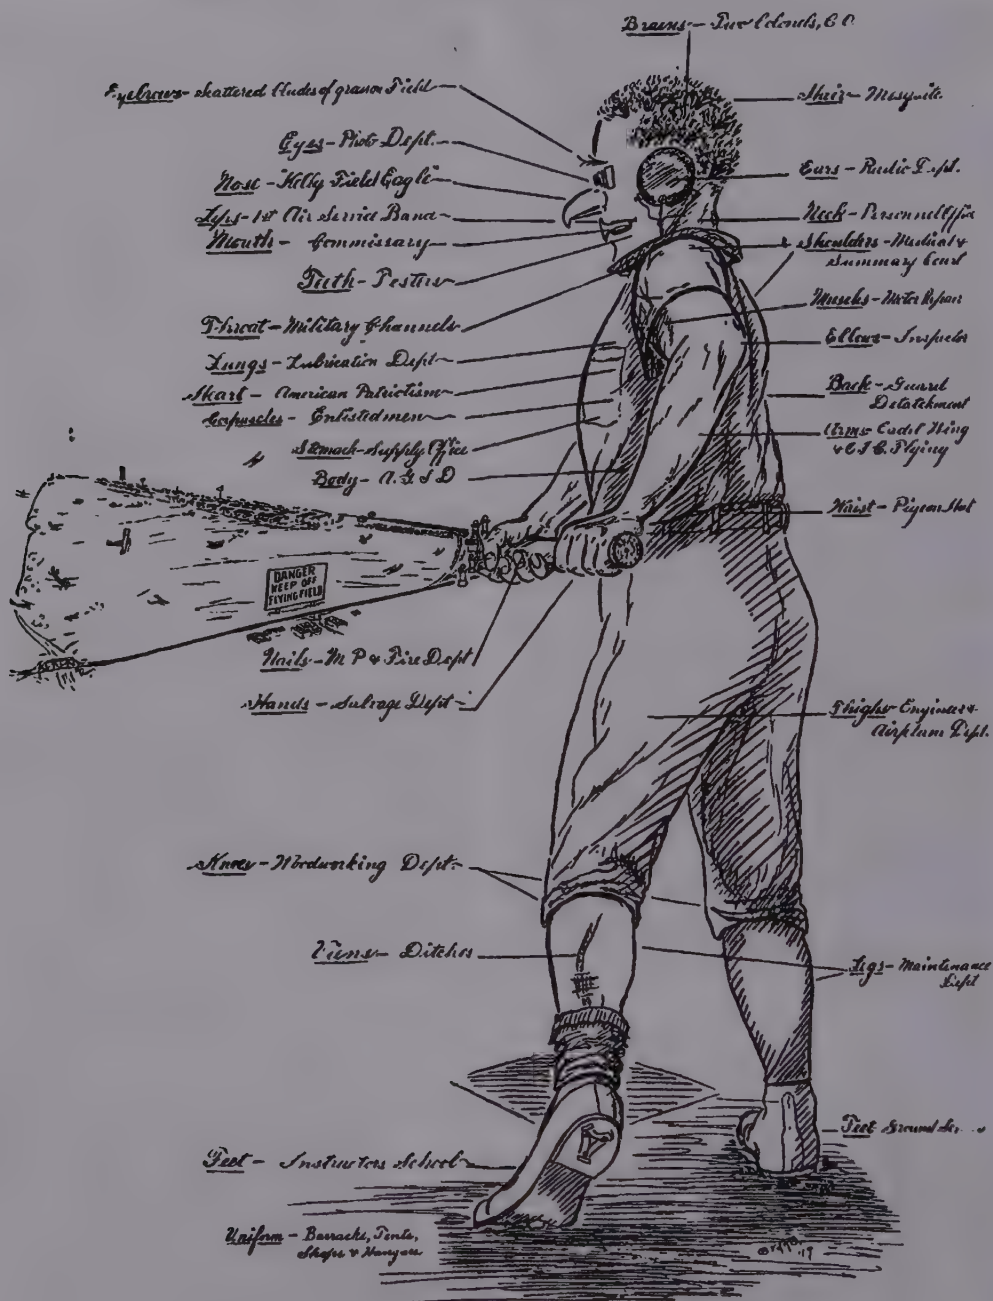 Brains - Two Colonels, C O
Eyebrows - Scattered Blades of grass on Field
Hair - Mesquite
Eyes - Photo Dept.
Ears - Radio Dept.
Nose - "Kelly Field Eagle"
Lips - 1st Air Service Band
Neck - Personnel Office
Mouth - Commissary
Shoulders - Medical &
Summary Court
Teeth - Posters
Muscles - Motor Repair
Throat - Military Channels
Elbows - Inspector
Lungs - Lubrication Dept
Heart - American Patriotism
Back - Guard
Detatchment
Corpuscles - Enlisted men
Arms - Cadet Wing
& Flying
Stomach - Supply Office
Body - A. G. S D
Waist - Pigeon
DANGER
KEEP OFF
FLYING FIELD
Nails - M P & Fire Dept
Hands - Salvage Dept
Thighs - Engineers &
Airplane Dept.
Knees - Woodworking Dept.
Viens - Ditches
Legs - Maintenance
Dept
Feet Ground
Feet - Instructors School
Uniform - Barracks, Tents,
Shops & Hangars
'19